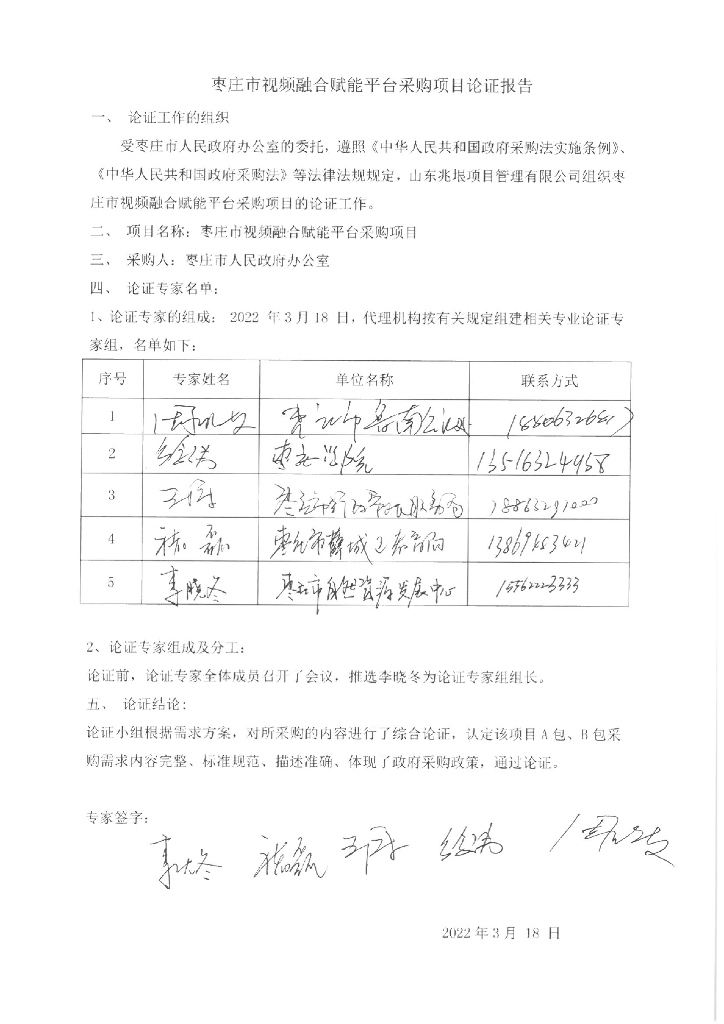 枣庄市视频融合赋能平台采购项目论证报告
一、 论证工作的组织
受枣庄市人民政府办公室的委托，遵照《中华人民共和国政府采购法实施条例》、
《中华人民共和国政府采购法》等法律法规规定，山东兆垠项目管理有限公司组织枣
庄市视频融合赋能平台采购项目的论证工作。
二、 项目名称：枣庄市视频融合赋能平台采购项目
三、 采购人：枣庄市人民政府办公室
四、 论证专家名单：
1、论证专家的组成： 2022 年3月18 日，代理机构按有关规定组建相关专业论证专
家组，名单如下：
序号 专家姓名 单位名称 联系方式
1
2 13516324958
3 王
4 枣庄市薛城区 13869653421
5 李晓冬 枣庄市自然资源发展中心 15562223333
2、论证专家组成及分工：
论证前，论证专家全体成员召开了会议，推选李晓冬为论证专家组组长。
五、 论证结论：
论证小组根据需求方案，对所采购的内容进行了综合论证，认定该项目A包、B包采
购需求内容完整、标准规范、描述准确、体现了政府采购政策，通过论证。
专家签字：
李晓冬
2022年3月 18 日